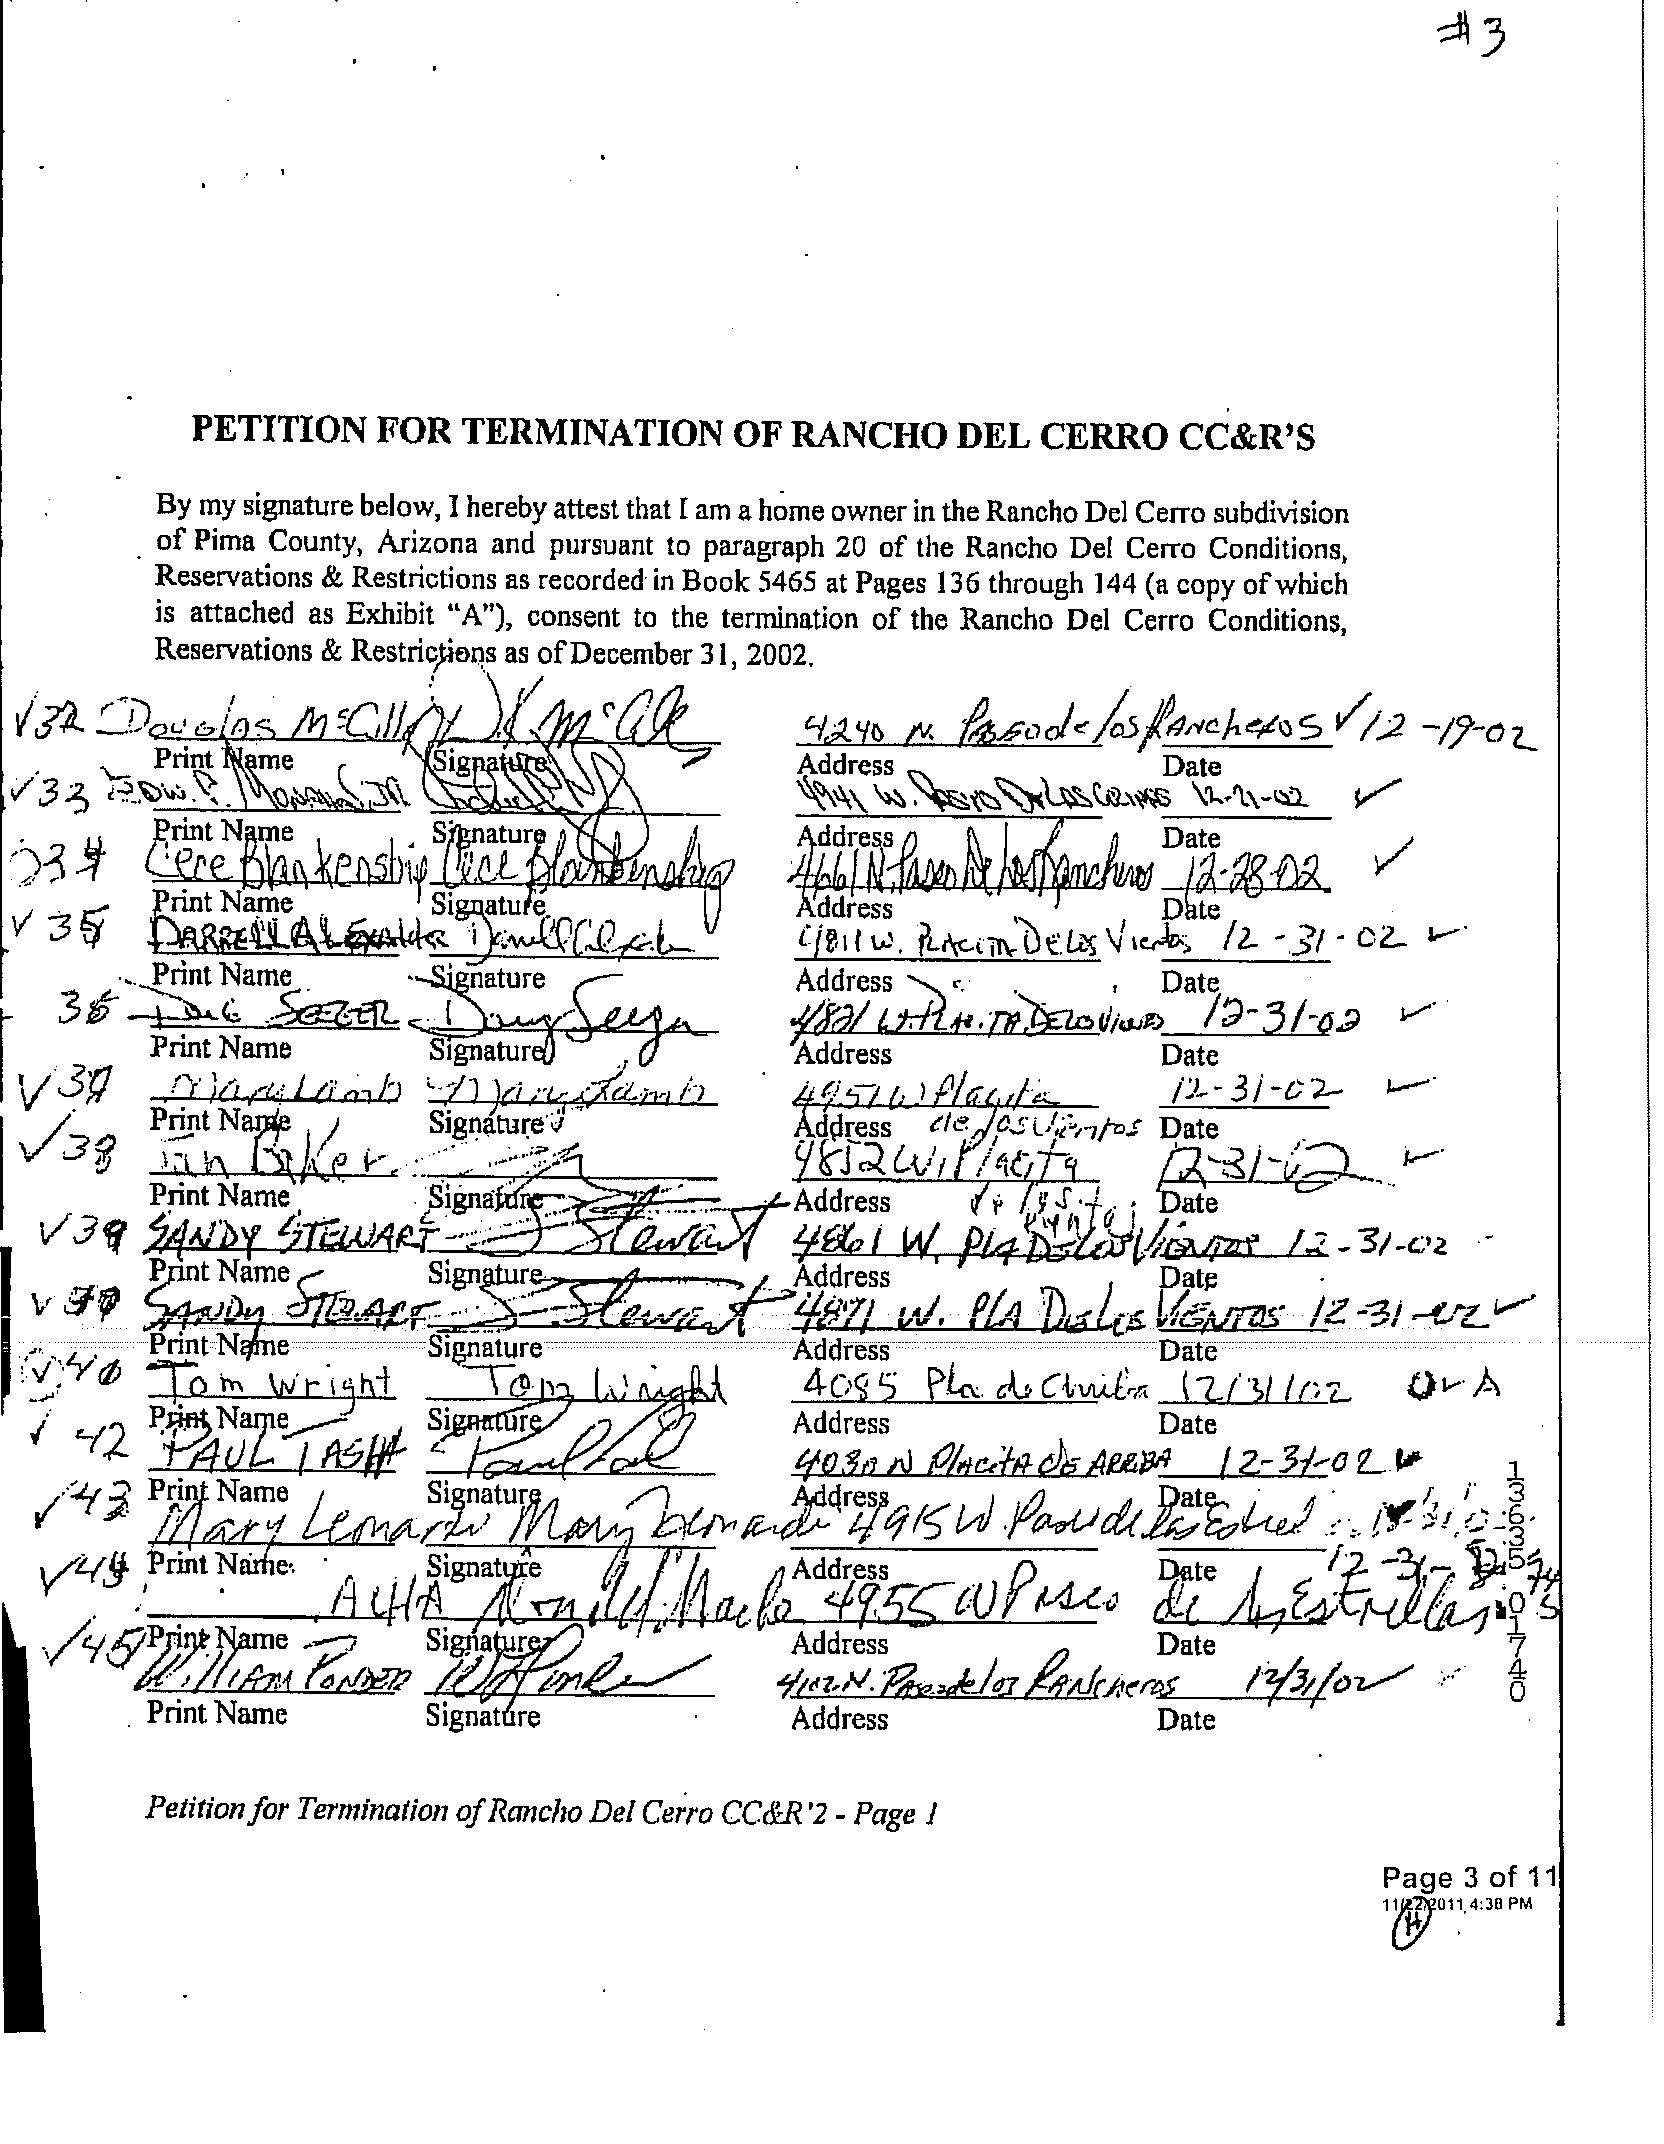 #3
PETITION FOR TERMINATION OF RANCHO DEL CERRO CC&R'S
By my signature below, I hereby attest that I am a home owner in the Rancho Del Cerro subdivision
of Pima County, Arizona and pursuant to paragraph 20 of the Rancho Del Cerro Conditions,
Reservations & Restrictions as recorded in Book 5465 at Pages 136 through 144 (a copy of which
is attached as Exhibit "A"), consent to the termination of the Rancho Del Cerro Conditions,
Reservations & Restrictions as of December 31, 2002.
√32 Douglas 4240 N. Paseo de los Rancheros √ 12-19-02
Print Name Signature Address Date
√33 4941 W. 12-21-02 √
Print Name Signature Address Date
34 Cece Blankenship Cece Blankenship 4661 N. Paseo De Los Rancheros 12-28-02 √
Print Name Signature Address Date
√ 35 DARRELL ALEXANDER 4811 W. PLACITA De Los Vientos 12-31-02
Print Name Signature Address Date
36 DOUG SEEGER Doug Seeger 4821 W. 12-31-02
Print Name Signature Address Date
√37 Mary Lamb Mary Lamb 4951 W Placita 12-31-02
Print Name Signature Address de los Vientos Date
√38 Ian Baker 4852 W. Placita 12-31-02
Print Name Signature Address Date
√39 SANDY STEWART S Stewart 4861 W. PLA De Los Vientos 12-31-02
Print Name Signature Address Date
√ SANDY STEWART S Stewart 4871 W. PLA De Los VIENTOS 12-31-02
Print Name Signature Address Date
√40 Tom Wright Tom Wright 4085 Pla de 12/31/02
Print Name Signature Address Date
√ 42 PAUL TASH 4030 N PlACitA de ARRIBA 12-31-02
Print Name Signature Address Date
√43 Mary Leonardi Mary Leonardi 4915 W Paseo de las
Print Name Signature Address Date
√44 4955 W Paseo de las Estrellas
Print Name Signature Address Date
√45 William Ponder 4102 N. Paseo de los Rancheros 12/31/02
Print Name Signature Address Date
13635 01740
Petition for Termination of Rancho Del Cerro CC&R'2 - Page 1
Page 3 of 11
11/22/2011, 4:38 PM